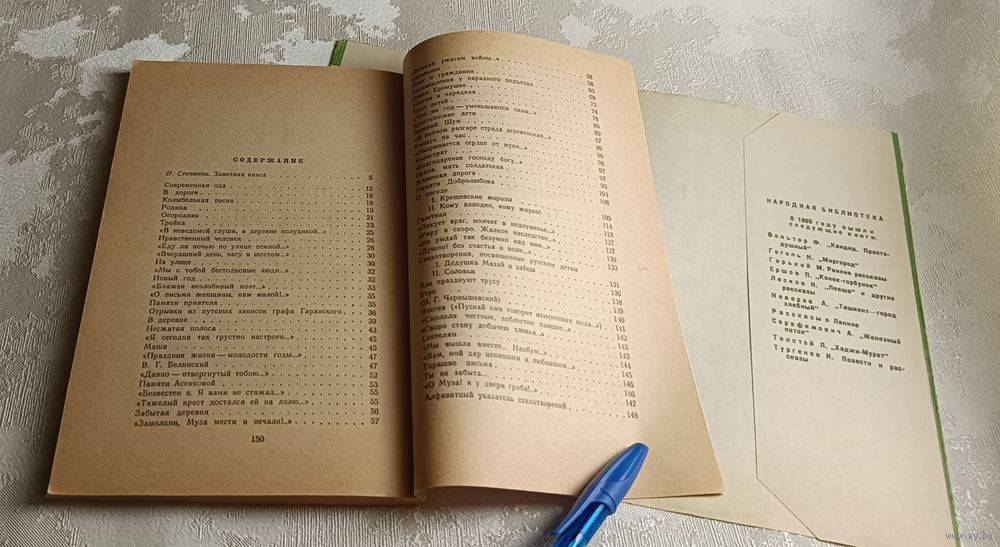 СОДЕРЖАНИЕ
Н. Степанов. Заветная книга 5
Современная ода 15
В дороге 16
Колыбельная песня 18
Родина 19
Огородник 21
Тройка 23
«В неведомой глуши, в деревне полудикой...» 25
Нравственный человек 26
«Еду ли ночью по улице темной...» 28
«Вчерашний день, часу в шестом...» 30
На улице 30
«Мы с тобой бестолковые люди...» 32
Новый год 32
«Блажен незлобивый поэт...» 33
«О письма женщины, нам милой!..» 35
Памяти приятеля 35
Отрывки из путевых записок графа Гаранского 35
В деревне 39
Несжатая полоса 43
«Я сегодня так грустно настроен...» 45
Маша 45
«Праздник жизни — молодости годы...» 47
В. Г. Белинский 47
«Давно — отвергнутый тобою...» 52
Памяти Асенковой 53
«Безвестен я. Я вами не стяжал...» 55
«Тяжелый крест достался ей на долю...» 55
Забытая деревня 56
«Замолкни, Муза мести и печали!..» 57
150
«Внимая ужасам войны...» 58
Школьник 58
Поэт и гражданин 60
Размышления у парадного подъезда 68
Песня Еремушке 72
Убогая и нарядная 74
Плач детей 78
«Что ни год — уменьшаются силы...» 80
Крестьянские дети 80
Зеленый Шум 87
«В полном разгаре страда деревенская...» 89
Рыцарь на час 90
«Надрывается сердце от муки...» 96
Калистрат 97
«Благодарение господу богу...» 97
Орина, мать солдатская 101
Железная дорога 104
Памяти Добролюбова 108
О погоде
I. Крещенские морозы 109
II. Кому холодно, кому жарко! 114
Газетная 118
«Ликует враг, молчит в недоуменье...» 127
«Умру я скоро. Жалкое наследство...» 127
«Не рыдай так безумно над ним...» 132
«Душно! без счастья и воли...»
Стихотворения, посвященные русским детям
I. Дедушка Мазай и зайцы
II. Соловьи 131
Как празднуют трусу 136
Утро 138
(Н. Г. Чернышевский) 139
Элегия («Пускай нам говорит изменчивая мода...») 140
«Смолкли честные, доблестно павшие...» 141
«Скоро стану добычею тленья...» 142
Сеятелям 143
«Мы вышли вместе... Наобум...» 144
«Вам, мой дар ценившим и любившим...» 144
Горящие письма 145
Ты не забыта... 146
«О Муза! я у двери гроба!..» 147
Алфавитный указатель стихотворений 148
НАРОДНАЯ БИБЛИОТЕКА
В 1965 году вышли
следующие книги:
Вольтер Ф. „Кандид. Просто-
душный"
Гоголь Н. „Миргород"
Горький М. Ранние рассказы
Ершов П. „Конек-горбунок"
Лесков Н. „Левша" и другие
рассказы
Неверов А. „Ташкент—город
хлебный"
Рассказы о Ленине
Серафимович А. „Железный
поток"
Толстой Л. „Хаджи-Мурат"
Тургенев И. Повести и рас-
сказы
www.ay.by